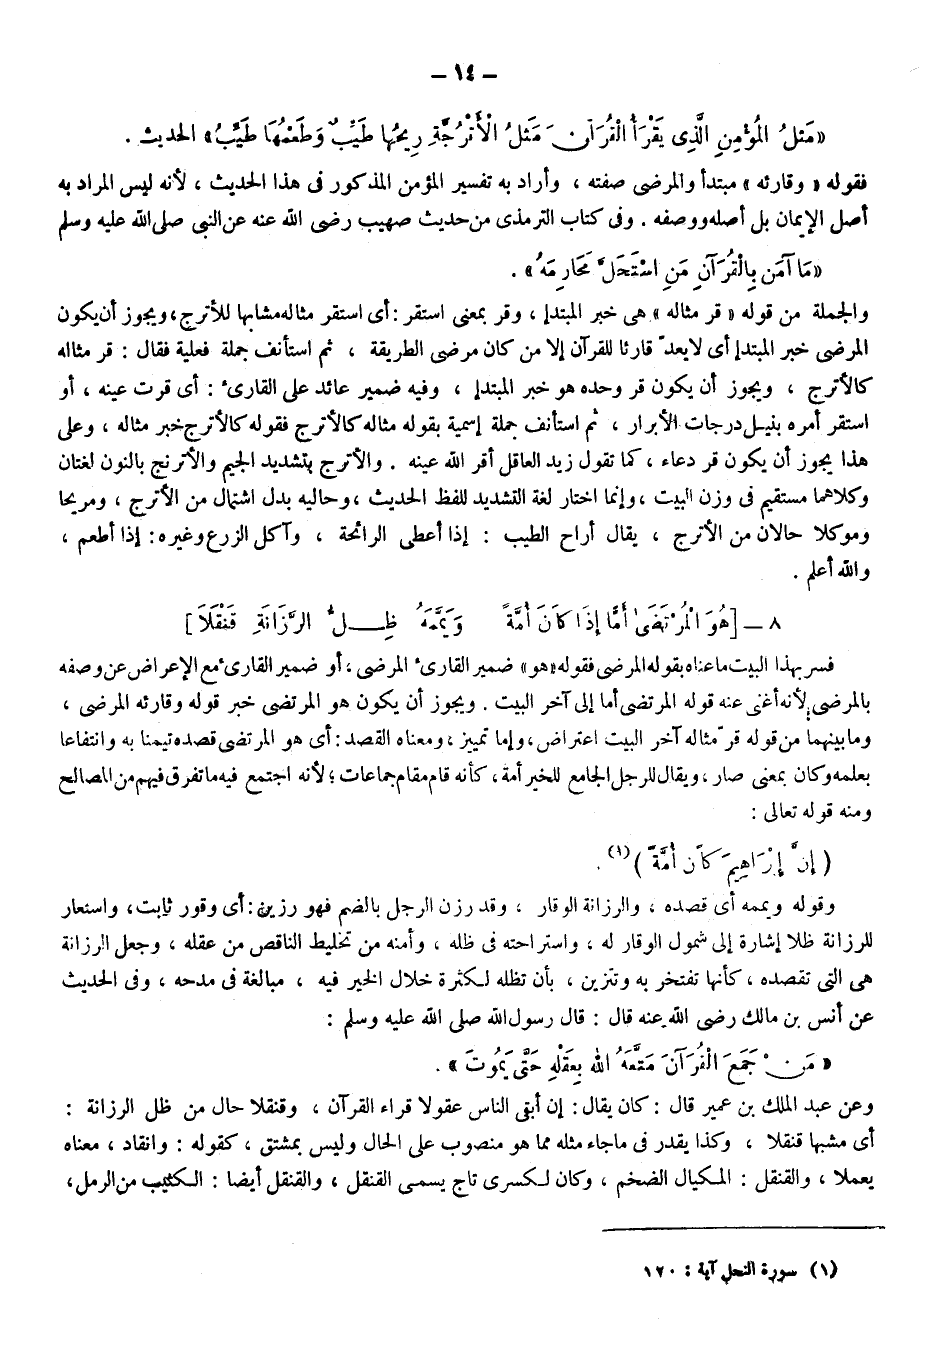 – ١٤ –
«مَثَلُ الْمُؤْمِنِ الَّذِى يَقْرَأُ الْقُرْآنَ مَثَلُ الْأُتْرُجَّةِ رِيحُهَا طَيِّبٌ وَطَعْمُهَا طَيِّبٌ» الحديث .
فقوله « وقارئه » مبتدأ والمرضى صفته ، وأراد به تفسير المؤمن المذكور فى هذا الحديث ، لأنه ليس المراد به
أصل الإيمان بل أصله ووصفه . وفى كتاب الترمذى من حديث صهيب رضى الله عنه عن النبى صلى الله عليه وسلم
«مَا آمَنَ بِالْقُرْآنِ مَنِ اسْتَحَلَّ مَحَارِمَهُ» .
والجملة من قوله « قر مثاله » هى خبر المبتدإ ، وقر بمعنى استقر : أى استقر مثاله مشابها للأترج ، ويجوز أن يكون
المرضى خبر المبتدإ أى لا يعدّ قارئا للقرآن إلا من كان مرضى الطريقة ، ثم استأنف جملة فعلية فقال : قر مثاله
كالأترج ، ويجوز أن يكون قر وحده هو خبر المبتدإ ، وفيه ضمير عائد على القارئ : أى قرت عينه ، أو
استقر أمره بنيل درجات الأبرار ، ثم استأنف جملة إسمية بقوله مثاله كالأترج فقوله كالأترج خبر مثاله ، وعلى
هذا يجوز أن يكون قر دعاء ، كما تقول زيد العاقل أقر الله عينه . والأترج بتشديد الجيم والأترنج بالنون لغتان
وكلاهما مستقيم فى وزن البيت ، وإنما اختار لغة التشديد للفظ الحديث ، وحاليه بدل اشتمال من الأترج ، ومريحا
وموكلا حالان من الأترج ، يقال أراح الطيب : إذا أعطى الرائحة ، وآكل الزرع وغيره : إذا أطعم ،
والله أعلم .
٨ – [هُوَ الْمُرْتَضَى أَمًّا إِذَا كَانَ أُمَّةً وَيَمَّمَهُ ظِلُّ الرَّزَانَةِ قَنْقَلَا]
فسر بهذا البيت ما عناه بقوله المرضى فقوله «هو» ضمير القارئ المرضى ، أو ضمير القارئ مع الإعراض عن وصفه
بالمرضى لأنه أغنى عنه قوله المرتضى أما إلى آخر البيت . ويجوز أن يكون هو المرتضى خبر قوله وقارئه المرضى ،
وما بينهما من قوله قرّ مثاله آخر البيت اعتراض ، وإما تمييز ، ومعناه القصد : أى هو المرتضى قصده تيمنا به وانتفاعا
بعلمه وكان بمعنى صار ، ويقال للرجل الجامع للخير أمة ، كأنه قام مقام جماعات ؛ لأنه اجتمع فيه ما تفرق فيهم من المصالح
ومنه قوله تعالى :
( إِنَّ إِبْرَاهِيمَ كَانَ أُمَّةً )(١) .
وقوله ويممه أى قصده ، والرزانة الوقار ، وقد رزن الرجل بالضم فهو رزين : أى وقور ثابت ، واستعار
للرزانة ظلا إشارة إلى شمول الوقار له ، واستراحته فى ظله ، وأمنه من تخليط الناقص من عقله ، وجعل الرزانة
هى التى تقصده ، كأنها تفتخر به وتتزين ، بأن تظله لكثرة خلال الخير فيه ، مبالغة فى مدحه ، وفى الحديث
عن أنس بن مالك رضى الله عنه قال : قال رسول الله صلى الله عليه وسلم :
« مَنْ جَمَعَ الْقُرْآنَ مَتَّعَهُ اللهُ بِعَقْلِهِ حَتَّى يَمُوتَ » .
وعن عبد الملك بن عمير قال : كان يقال : إن أبقى الناس عقولا قراء القرآن ، وقنقلا حال من ظل الرزانة :
أى مشبها قنقلا ، وكذا يقدر فى ما جاء مثله مما هو منصوب على الحال وليس بمشتق ، كقوله : وانقاد ، معناه
يعملا ، والقنقل : المكيال الضخم ، وكان لكسرى تاج يسمى القنقل ، والقنقل أيضا : الكثيب من الرمل،
(١) سورة النحل آية : ١٢٠